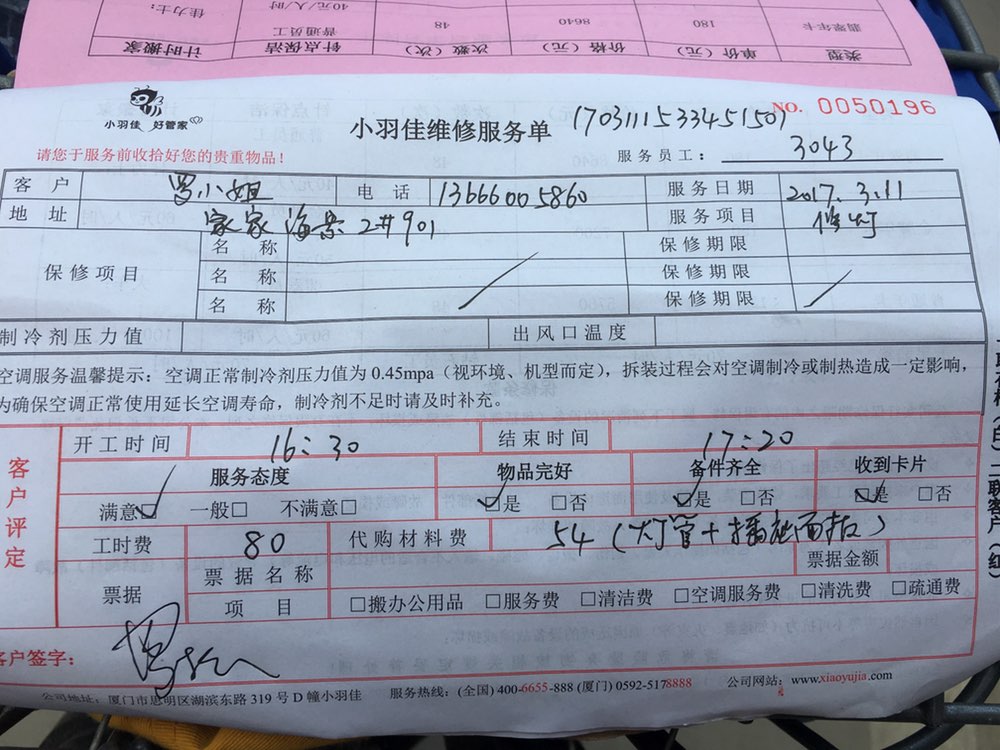 类型 单价（元） 价格（元） 次数（次） 针点保洁 计时搬家
翡翠年卡 180 8640 48 普通员工 佳力士：
40元/人/时
小羽佳 好管家
小羽佳维修服务单
170311153345150
NO. 0050196
请您于服务前收拾好您的贵重物品！
服务员工： 3043
客户 罗小姐 电话 13666005860 服务日期 2017.3.11
地址 家家海景2#901 服务项目 修灯
保修项目 名称 保修期限
名称 保修期限
名称 保修期限
制冷剂压力值 出风口温度
空调服务温馨提示：空调正常制冷剂压力值为 0.45mpa（视环境、机型而定），拆装过程会对空调制冷或制热造成一定影响，
为确保空调正常使用延长空调寿命，制冷剂不足时请及时补充。
客户评定
开工时间 16:30 结束时间 17:20
服务态度 物品完好 备件齐全 收到卡片
满意☑ 一般□ 不满意□ ☑是 □否 ☑是 □否 ☑是 □否
工时费 80 代购材料费 54（灯管+插座面板）
票据 票据名称 票据金额
项目 □搬办公用品 □服务费 □清洁费 □空调服务费 □清洗费 □疏通费
客户签字：
公司地址：厦门市思明区湖滨东路 319 号 D 幢小羽佳 服务热线：(全国) 400-6655-888 (厦门) 0592-5178888 公司网站：www.xiaoyujia.com
二联客户(红)